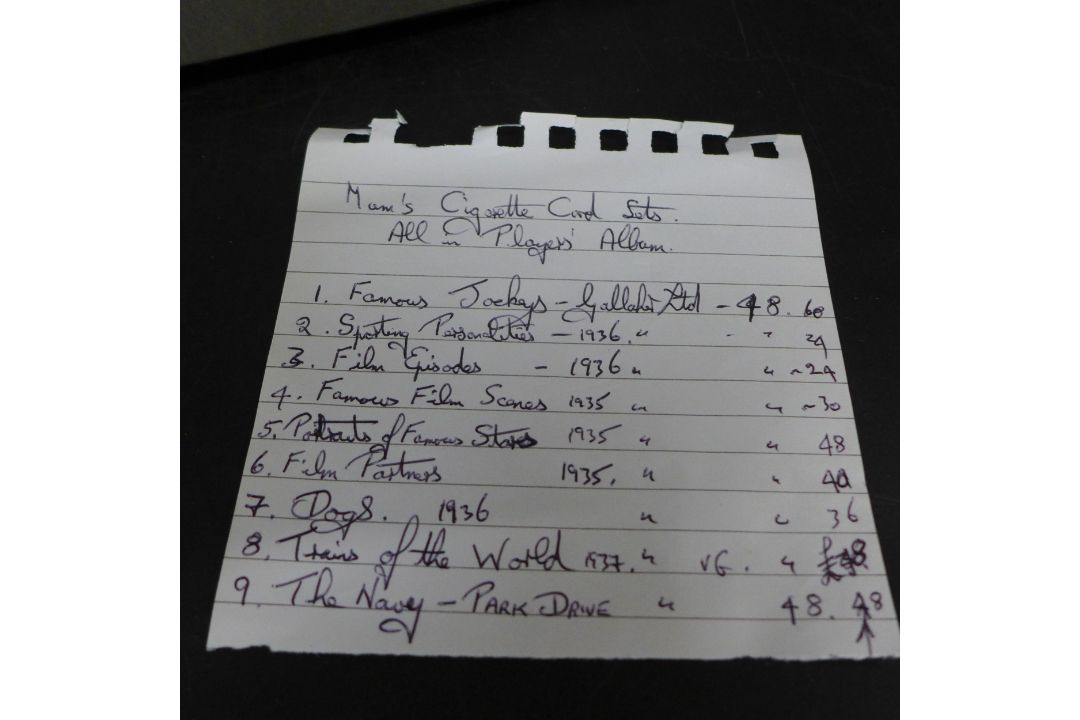 Mum's Cigarette Card Sets.
All in Players' Album.
1. Famous Jockeys - Gallaher Ltd - 48. 60
2. Sporting Personalities - 1936. " - " 24
3. Film Episodes - 1936 " " ~24
4. Famous Film Scenes 1935 " " ~30
5. Portraits of Famous Stars 1935 " " 48
6. Film Partners 1935. " "
7. Dogs. 1936 " " 36
8. Trains of the World 1937. " VG. "
9. The Navy - PARK DRIVE " 48. 48